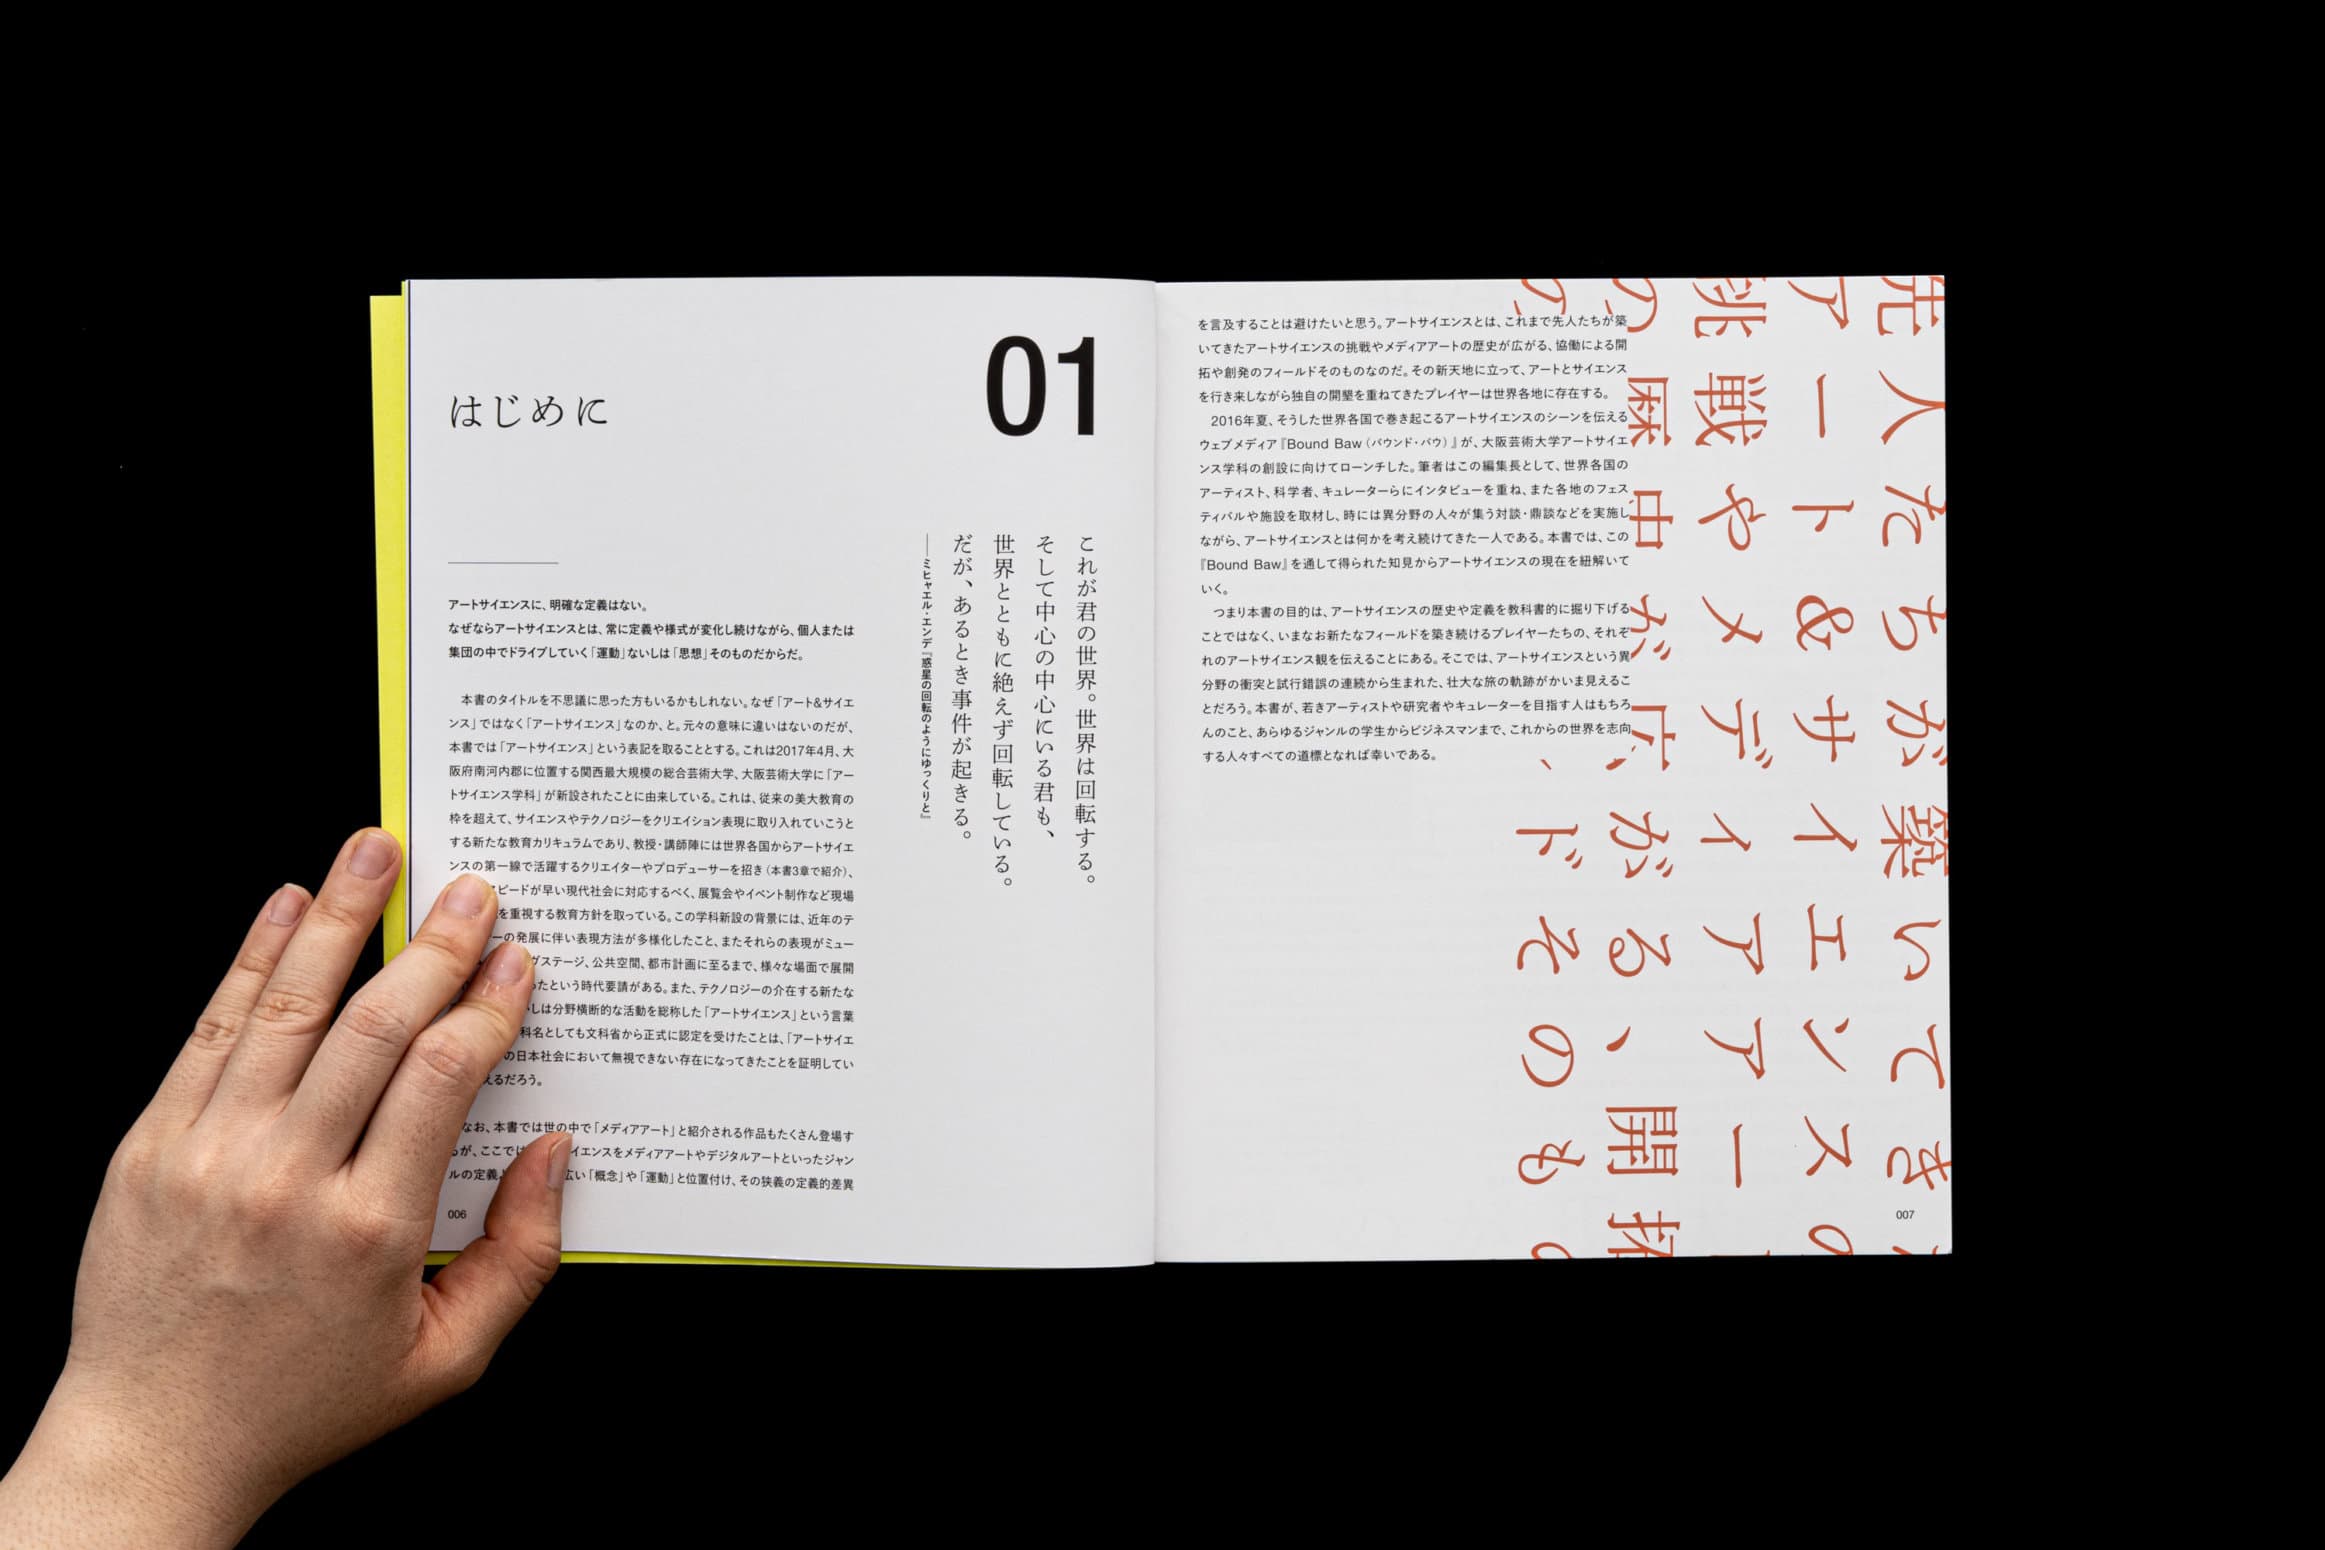 はじめに
01
これが君の世界。世界は回転する。
そして中心の中心にいる君も、
世界とともに絶えず回転している。
だが、あるとき事件が起きる。
──ミヒャエル・エンデ『惑星の回転のようにゆっくりと』
アートサイエンスに、明確な定義はない。
なぜならアートサイエンスとは、常に定義や様式が変化し続けながら、個人または
集団の中でドライブしていく「運動」ないしは「思想」そのものだからだ。
本書のタイトルを不思議に思った方もいるかもしれない。なぜ「アート&サイエ
ンス」ではなく「アートサイエンス」なのか、と。元々の意味に違いはないのだが、
本書では「アートサイエンス」という表記を取ることとする。これは2017年4月、大
阪府南河内郡に位置する関西最大規模の総合芸術大学、大阪芸術大学に「アー
トサイエンス学科」が新設されたことに由来している。これは、従来の美大教育の
枠を超えて、サイエンスやテクノロジーをクリエイション表現に取り入れていこうと
する新たな教育カリキュラムであり、教授・講師陣には世界各国からアートサイエ
ンスの第一線で活躍するクリエイターやプロデューサーを招き（本書3章で紹介）、
スピードが早い現代社会に対応するべく、展覧会やイベント制作など現場
を重視する教育方針を取っている。この学科新設の背景には、近年のテ
ーの発展に伴い表現方法が多様化したこと、またそれらの表現がミュー
グステージ、公共空間、都市計画に至るまで、様々な場面で展開
ったという時代要請がある。また、テクノロジーの介在する新たな
しは分野横断的な活動を総称した「アートサイエンス」という言葉
科名としても文科省から正式に認定を受けたことは、「アートサイエ
の日本社会において無視できない存在になってきたことを証明してい
えるだろう。
なお、本書では世の中で「メディアアート」と紹介される作品もたくさん登場す
るが、ここでは イエンスをメディアアートやデジタルアートといったジャン
ルの定義よ 広い「概念」や「運動」と位置付け、その狭義の定義的差異
006
を言及することは避けたいと思う。アートサイエンスとは、これまで先人たちが築
いてきたアートサイエンスの挑戦やメディアアートの歴史が広がる、協働による開
拓や創発のフィールドそのものなのだ。その新天地に立って、アートとサイエンス
を行き来しながら独自の開墾を重ねてきたプレイヤーは世界各地に存在する。
2016年夏、そうした世界各国で巻き起こるアートサイエンスのシーンを伝える
ウェブメディア『Bound Baw（バウンド・バウ）』が、大阪芸術大学アートサイエ
ンス学科の創設に向けてローンチした。筆者はこの編集長として、世界各国の
アーティスト、科学者、キュレーターらにインタビューを重ね、また各地のフェス
ティバルや施設を取材し、時には異分野の人々が集う対談・鼎談などを実施し
ながら、アートサイエンスとは何かを考え続けてきた一人である。本書では、この
『Bound Baw』を通して得られた知見からアートサイエンスの現在を紐解いて
いく。
つまり本書の目的は、アートサイエンスの歴史や定義を教科書的に掘り下げる
ことではなく、いまなお新たなフィールドを築き続けるプレイヤーたちの、それぞ
れのアートサイエンス観を伝えることにある。そこでは、アートサイエンスという異
分野の衝突と試行錯誤の連続から生まれた、壮大な旅の軌跡がかいま見えるこ
とだろう。本書が、若きアーティストや研究者やキュレーターを目指す人はもちろ
んのこと、あらゆるジャンルの学生からビジネスマンまで、これからの世界を志向
する人々すべての道標となれば幸いである。
先人たちが築いてき
アート&サイエンスの
挑戦やメディアアー
の がる、開拓
ドそのもの
007